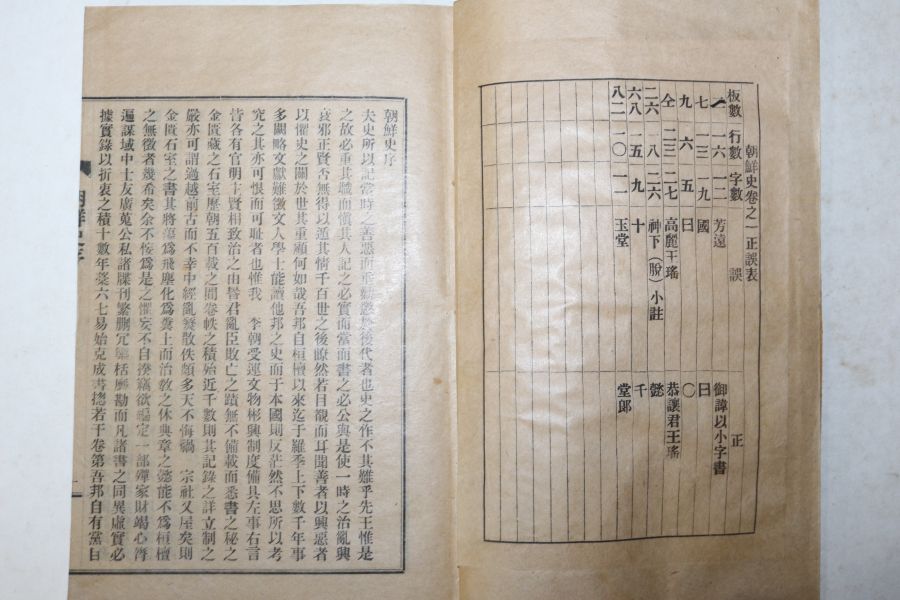 朝鮮史卷之一正誤表
板數 行數 字數 誤 正
一 一六 一二 芳遠 御諱以小字書
七 一三 一九 國 曰
九 六 五 曰 〇
仝 二三 二七 高麗王瑤 恭讓君王瑤
二六 一八 二六 神下(脫)小註 懿
六八 一五 九 十 千
八二 一〇 一一 玉堂 堂郞
朝鮮史序
夫史所以記當時之善惡而垂勸懲於後代者也史之作不其難乎先王惟是
之故必重其職而愼其人記之必實而當而書之必公與是使一時之治亂興
衰邪正賢否無得以遁其情千百世之後瞭然若目覩而耳聞善者以興惡者
以懼史之關於世其重顧何如哉吾邦自桓檀以來迄于羅季上下數千年事
多闕略文獻難徵文人學士能讀他邦之史而于本國則反茫然不思所以考
究之其亦可恨而可耻者也惟我 李朝受運文物彬興制度備具左事右言
皆各有官明主賢相致治之由昏君亂臣敗亡之蹟無不備載而悉書之秘之
金匱藏之石室歷朝五百載之間卷帙之積始近千數則其記錄之詳立制之
嚴亦可謂過越前古而不幸中經亂 散佚頗多天不悔禍 宗社又屋矣則
金匱石室之書其將蕩爲飛塵化爲糞土而治敎之休典章之懿能不爲桓檀
之無徵者幾希矣余不佞爲是之懼妄不自揆竊欲編定一部殫家財竭心膂
遍謀域中士友廣蒐公私諸牒刊繁刪冗 栝 勘而凡諸書之同異虛實必
據實錄以折衷之積十數年 六七易始克成書摠若干卷第吾邦自有黨目